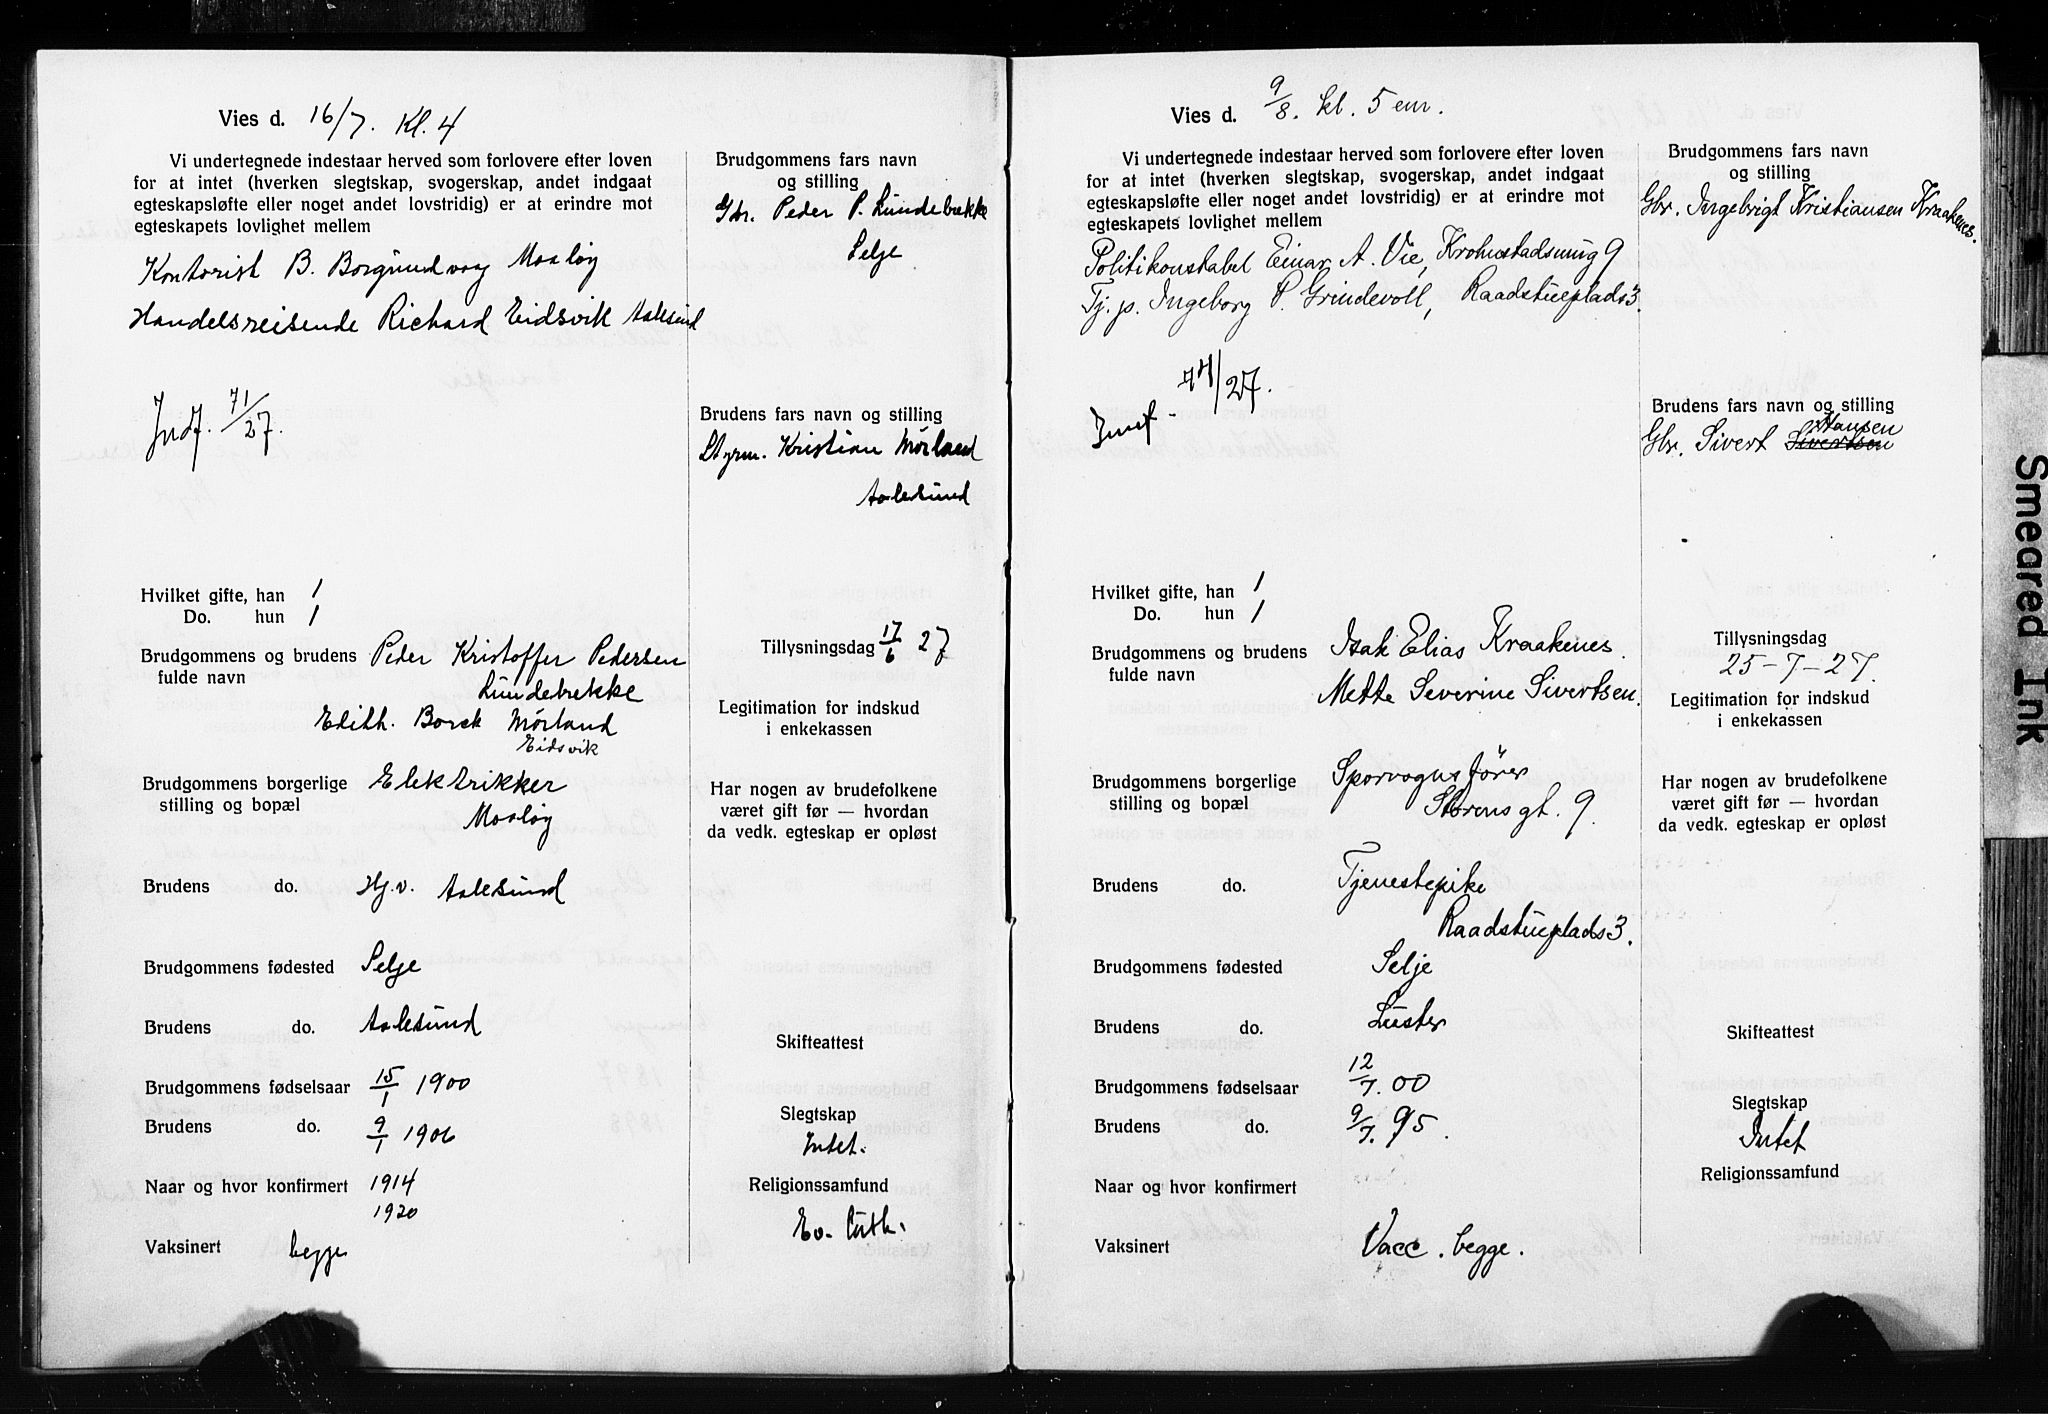 Vies d. 16/7. Kl. 4
Vi undertegnede indestaar herved som forlovere efter loven
for at intet (hverken slegtskap, svogerskap, andet indgaat
egteskapsløfte eller noget andet lovstridig) er at erindre mot
egteskapets lovlighet mellem
Kontorist B. Borgundvaag Maaløy
Handelsreisende Richard Eidsvik Aalesund
Indf. 71/27.
Brudgommens fars navn
og stilling
Gbr. Peder P. Lundebrekke
Selje
Brudens fars navn og stilling
Styrm. Kristian Mørland
Aalesund
Hvilket gifte, han 1
Do. hun 1
Brudgommens og brudens Peder Kristoffer Pedersen
fulde navn Lundebrekke
Edith. Borck Mørland
Eidsvik
Tillysningsdag 17/6 27
Legitimation for indskud
i enkekassen
Brudgommens borgerlige Elektrikker
stilling og bopæl Maaløy
Har nogen av brudefolkene
været gift før — hvordan
da vedk. egteskap er opløst
Brudens do. Hj.v. Aalesund
Brudgommens fødested Selje
Brudens do. Aalesund
Skifteattest
Brudgommens fødselsaar 15/1 1900
Brudens do. 9/1 1906
Slegtskap
Intet.
Naar og hvor konfirmert 1914
1920
Religionssamfund
Ev. luth.
Vaksinert begge
Vies d. 9/8. kl. 5 em.
Vi undertegnede indestaar herved som forlovere efter loven
for at intet (hverken slegtskap, svogerskap, andet indgaat
egteskapsløfte eller noget andet lovstridig) er at erindre mot
egteskapets lovlighet mellem
Politikonstabel Einar A. Vie, Krohnstadsmug 9
Tj. p. Ingeborg P. Grindevoll, Raadstueplads 3.
/27.
Brudgommens fars navn
og stilling
Gbr. Ingebrigt Kristiansen Kraakenes.
Brudens fars navn og stilling
Hansen
Gbr. Sivert Sivertsen
Hvilket gifte, han 1
Do. hun 1
Brudgommens og brudens Isak Elias Kraakenes.
fulde navn Mette Severine Sivertsen.
Tillysningsdag
25-7-27.
Legitimation for indskud
i enkekassen
Brudgommens borgerlige Sporvognsfører
stilling og bopæl Storensgt. 9.
Har nogen av brudefolkene
været gift før — hvordan
da vedk. egteskap er opløst
Brudens do. Tjenestepike
Raadstueplads 3.
Brudgommens fødested Selje
Brudens do. Luster
Skifteattest
Brudgommens fødselsaar 12/7. 00
Brudens do. 9/7. 95.
Slegtskap
Intet
Naar og hvor konfirmert
Religionssamfund
Vaksinert Vacc. begge.
Smeared Ink